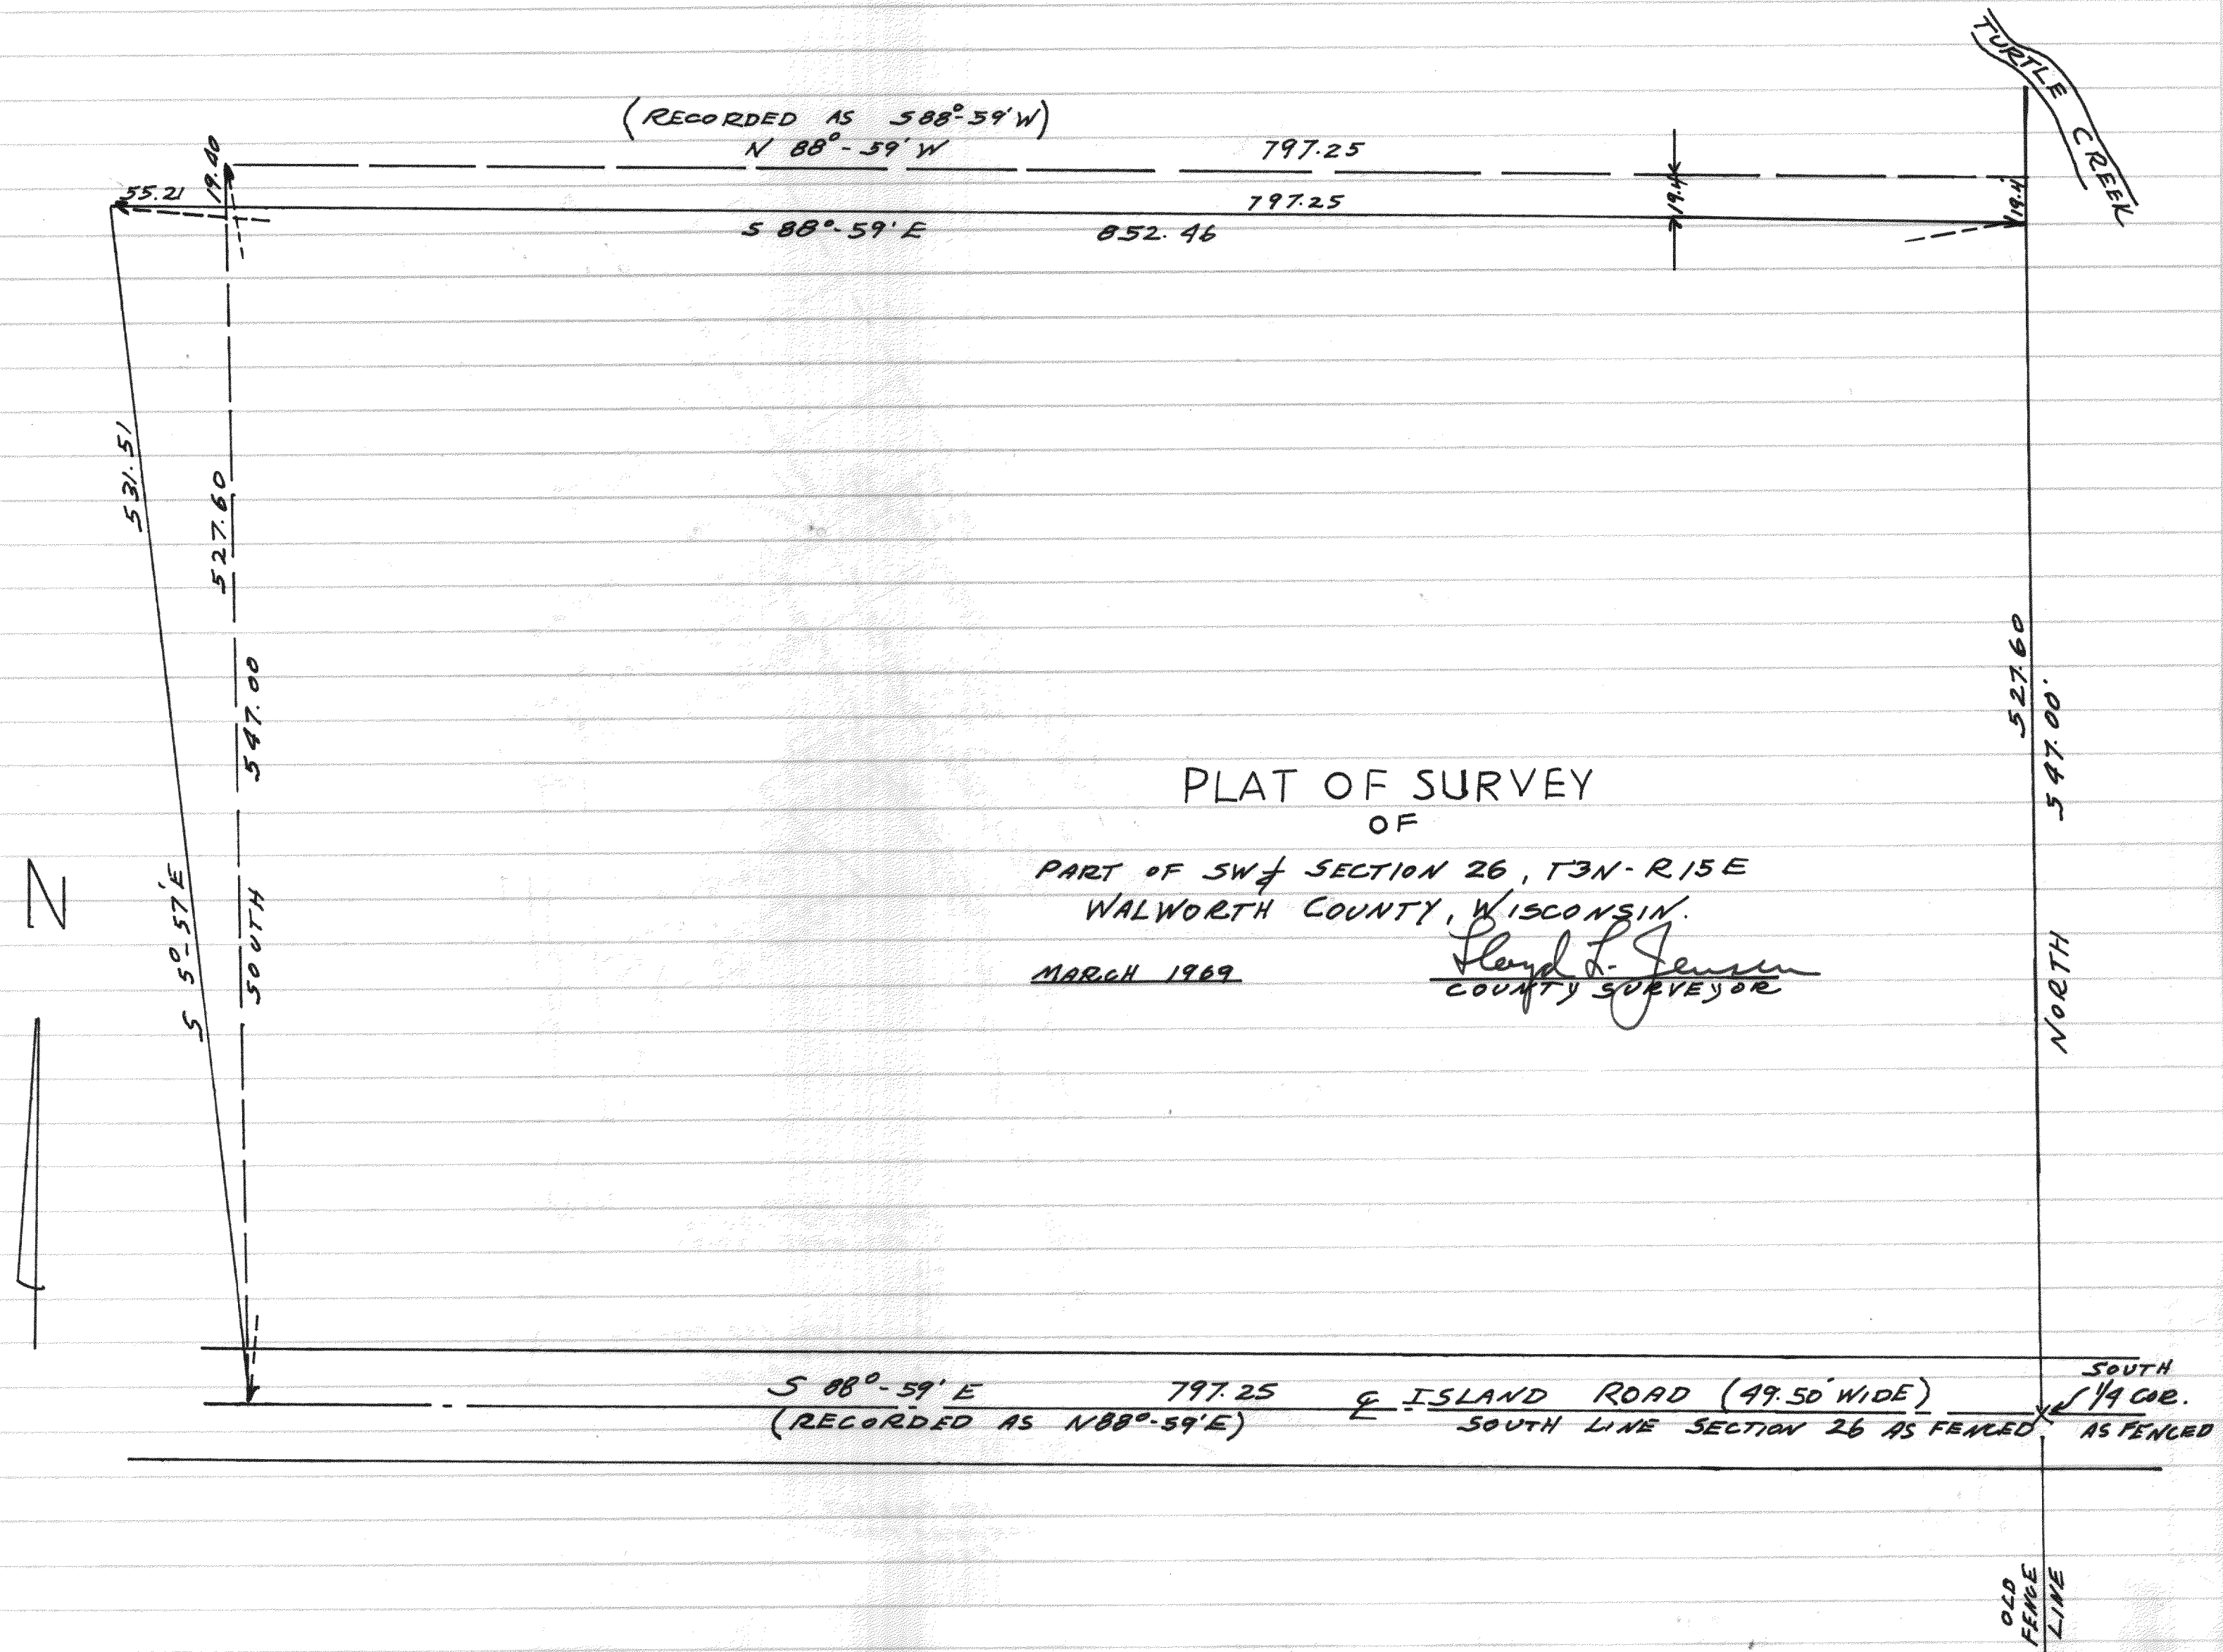 TURTLE CREEK
(RECORDED AS S 88°-59' W)
N 88°-59' W 797.25
19.40
55.21
797.25
19.4
19.4'
S 88°-59' E 852.46
531.51
527.60
547.00
S 5°-57' E
SOUTH
N
527.60
547.00'
NORTH
PLAT OF SURVEY
OF
PART OF SW¼ SECTION 26, T3N-R15E
WALWORTH COUNTY, WISCONSIN.
MARCH 1969
Lloyd L. Jensen
COUNTY SURVEYOR
S 88°-59' E 797.25 ℄ ISLAND ROAD (49.50' WIDE)
(RECORDED AS N88°-59'E) SOUTH LINE SECTION 26 AS FENCED
SOUTH
1/4 COR.
AS FENCED
OLD
FENCE
LINE